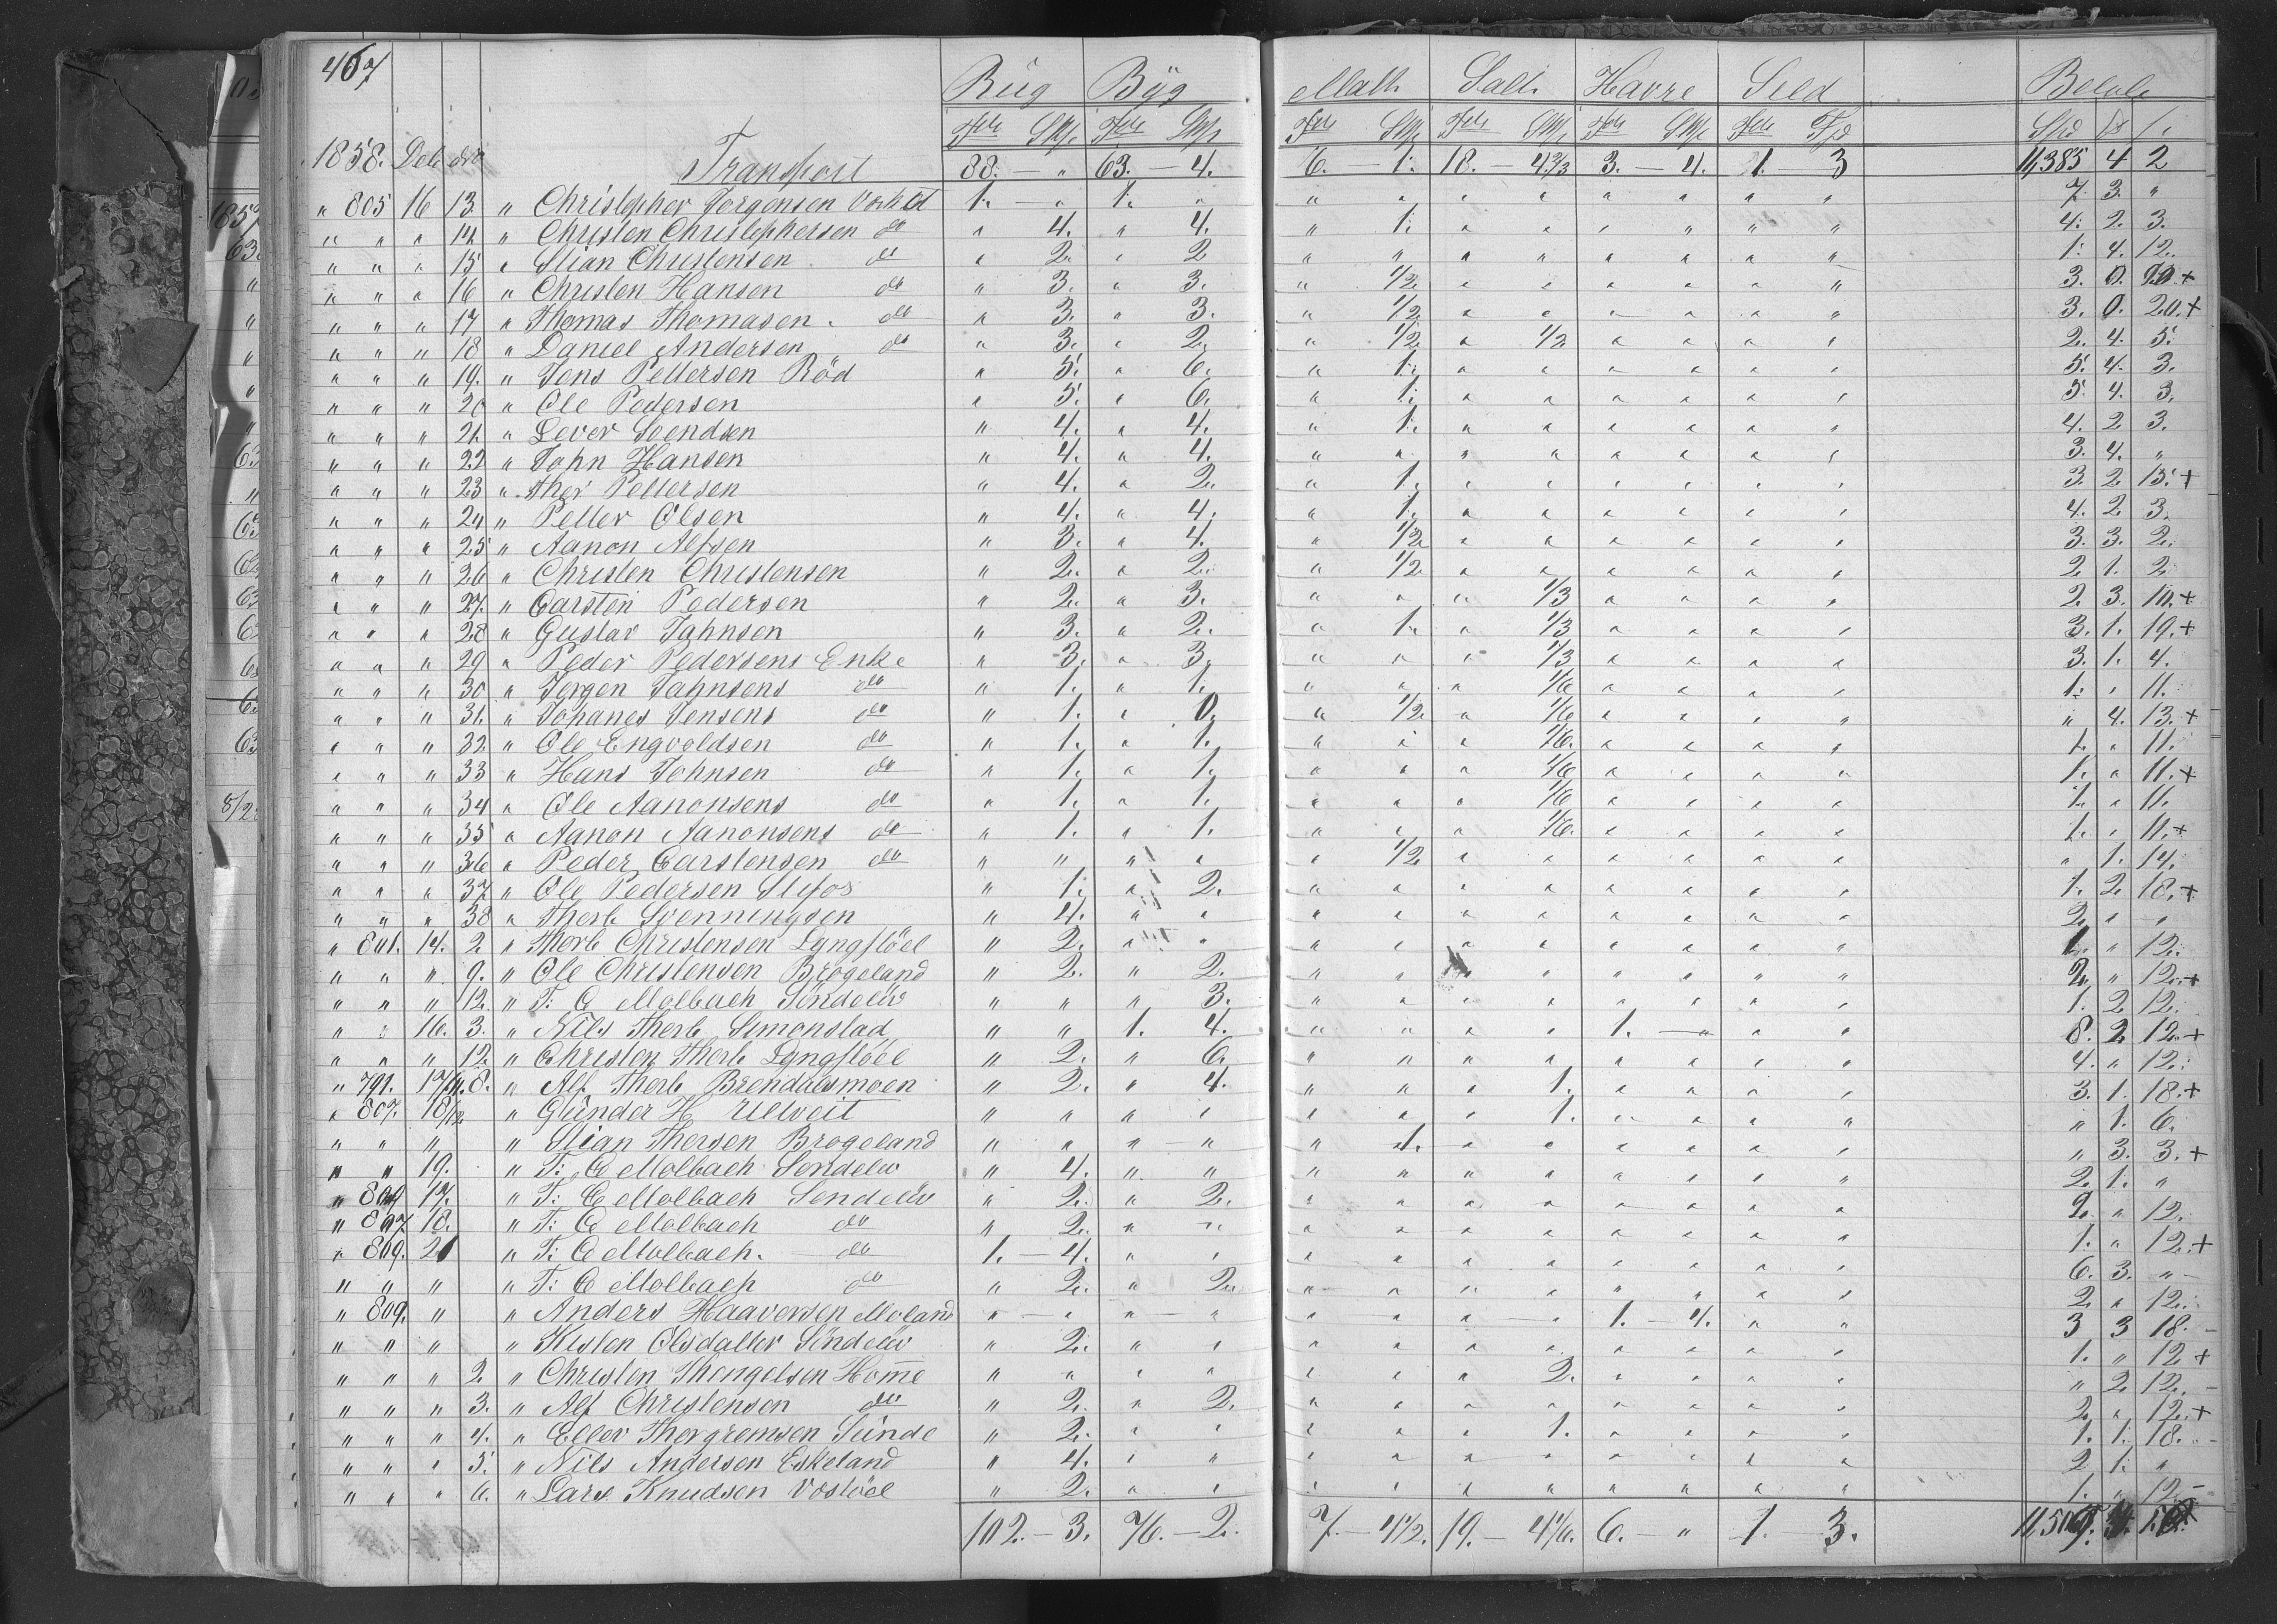 467
Rüg Byg Malt Salt Havre Sild Beløb
Tdr Skp Tdr Skp Tdr Skp Tdr Skp Tdr Skp Tdr Fjd Spd
1858. Debr Transport 88. — „ 63. — 4. 6. — 1. 18. — 4 2/3 3. — 4. 1. 3 11,385 4 2
„ 805 16 13. „ Christopher Jorgensen 1. — „ 1. „ „ „ „ „ „ „ „ „ 7. 3. „
„ „ „ 14. „ Christen Christophersen do „ 4. „ 4. „ 1. „ „ „ „ „ „ 4. 2. 3.
„ „ „ 15 „ Stian Christensen do „ 2. „ 2 „ „ „ „ „ „ „ „ 1. 4. 12.
„ „ „ 16 „ Christen Hansen do „ 3. „ 3. „ 1/2 „ „ „ „ „ „ 3. 0. 20 +
„ „ „ 17 „ Thomas Thomasen. do „ 3. „ 3. „ 1/2 „ „ „ „ „ „ 3. 0. 20. +
„ „ „ 18 „ Daniel Andersen do „ 3. „ 2. „ 1/2 „ 1/2 „ „ „ „ 2. 4. 5.
„ „ „ 19. „ Jens Pettersen Röd „ 5. „ 6. „ 1. „ „ „ „ „ „ 5. 4. 3.
„ „ „ 20 „ Ole Pedersen „ 5. „ 6. „ 1. „ „ „ „ „ „ 5. 4. 3.
„ „ „ 21. „ Sever Svendsen „ 4. „ 4. „ 1. „ „ „ „ „ „ 4. 2 3.
„ „ „ 22 „ John Hansen „ 4. „ 4. „ „ „ „ „ „ „ „ 3. 4. „
„ „ „ 23 „ Ther Pettersen „ 4. „ 2. „ 1. „ „ „ „ „ „ 3. 2. 15. +
„ „ „ 24 „ Petter Olsen „ 4. „ 4. „ 1. „ „ „ „ „ „ 4. 2 3.
„ „ „ 25 „ Aanon Alfsen „ 3. „ 4. „ 1/2 „ „ „ „ „ „ 3. 3. 2.
„ „ „ 26 „ Christen Christensen „ 2. „ 2. „ 1/2 „ „ „ „ „ „ 2 1. 2
„ „ „ 27. „ Carsten Pedersen „ 2. „ 3. „ „ „ 1/3 „ „ „ „ 2. 3. 10. +
„ „ „ 28 „ Gustav Jahnsen „ 3. „ 2. „ 1. „ 1/3 „ „ „ „ 3. 1. 19. +
„ „ „ 29 „ Peder Pedersens Enke „ 3. „ 3. „ „ „ 1/3 „ „ „ „ 3. 1. 4.
„ „ „ 30 „ Jorgen Jahnsens do „ 1. „ 1. „ „ „ 1/6 „ „ „ „ 1. „ 11.
„ „ „ 31. „ Johanes Jensens do „ 1. „ 0. „ 1/2 „ 1/6 „ „ „ „ „ 4. 13. +
„ „ „ 32 „ Ole Engvoldsen do „ 1. „ 1. „ „ „ 1/6. „ „ „ „ 1. „ 11.
„ „ „ 33 „ Hans Johnsen do „ 1. „ 1. „ „ „ 1/6 „ „ „ „ 1. „ 11. +
„ „ „ 34 „ Ole Aanonsens do „ 1. „ 1. „ „ „ 1/6 „ „ „ „ 1. „ 11.
„ „ „ 35 „ Aanon Aanonsens do „ 1. „ 1. „ „ „ 1/6. „ „ „ „ 1. „ 11. +
„ „ „ 36 „ Peder Carstensen do „ „ „ „ „ 1/2 „ „ „ „ „ „ „ 1. 14.
„ „ „ 37. „ Ole Pedersen „ 1. „ 2. „ „ „ „ „ „ „ „ 1. 2. 18. +
„ „ „ 38 „ Therb Svenningsen „ 4. „ „ „ „ „ „ „ „ „ „ 2. „ „
„ 801. 14. 2. „ Therb Christensen Lyngflöel „ 2. „ „ „ „ „ „ „ „ „ „ 1. „ 12.
„ „ „ 9. „ Ole Christensen Brogeland „ 2. „ 2. „ „ „ „ „ „ „ „ 2. „ 12. +
„ „ „ 12. „ T: C Molbach Söndelöv „ „ „ 3. „ „ „ „ „ „ „ „ 1. 2 12.
„ „ 16. 3. „ Nils Therb Simonstad „ „ 1. 4. „ „ „ „ 1. — „ „ „ 8. 2 12. +
„ „ „ 12. „ Christen Therb Lyngflöel „ 2. „ 6. „ „ „ „ „ „ „ „ 4. „ 12.
„ 791. 17/11. 8. „ Alf Therb Brendalsmoen „ 2. „ 4. „ „ „ 1. „ „ „ „ 3. 1. 18. +
„ 807. 18/12 „ Gunder H Ulveit „ „ „ „ „ „ „ 1. „ „ „ „ „ 1. 6.
„ „ „ „ Stian Thorsen Brogeland „ „ „ — „ „ 1. „ „ „ „ „ „ „ 3. 3. +
„ „ 19. „ T: C Molbach Söndelöv „ 4. „ „ „ „ „ „ „ „ „ „ 2. 1. „
„ 804 17. „ T: C Molbach Söndelöv „ 2. „ 2. „ „ „ „ „ „ „ „ 2. „ 12.
„ 807 18. „ T: C Molbach do „ 2. „ „ „ „ „ „ „ „ „ „ 1. „ 12. +
„ 809. 21 „ T: C Molbach. do 1. — 4. „ „ „ „ „ „ „ „ „ „ 6. 3. „
„ „ „ „ T: C Molbach do „ 2. „ 2. „ „ „ „ „ „ „ „ 2. „ 12.
„ 809. „ „ Anders Haaversen Moland „ — „ „ — „ „ „ „ — „ 1. — 4. „ „ 3 3 18.
„ „ „ „ Kisten Olsdatter Söndelöv „ 2. „ „ „ „ „ „ „ „ „ „ 1. „ 12 +
„ „ „ 2. „ Christen Thengelsen Home „ „ „ „ „ „ „ 2. „ „ „ „ „ 2 12.
„ „ „ 3. „ Alf Christensen do „ 2. „ 2. „ „ „ „ „ „ „ „ 2. „ 12. +
„ „ „ 4. „ Ellev Thorgremsen Sünde „ 2. „ „ „ „ „ 1. „ „ „ „ 1. 1. 18.
„ „ „ 5. „ Nils Andersen Eskeland „ 4. „ „ „ „ „ „ „ „ „ „ 2 1. „
„ „ „ 6. „ Lars Knudsen „ 2. „ „ „ „ „ „ „ „ „ „ 1. „ 12.
102. — 3. 76. — 2. 7. — 4 1/2. 19. — 4 1/6. 6. — „ 1. 3.